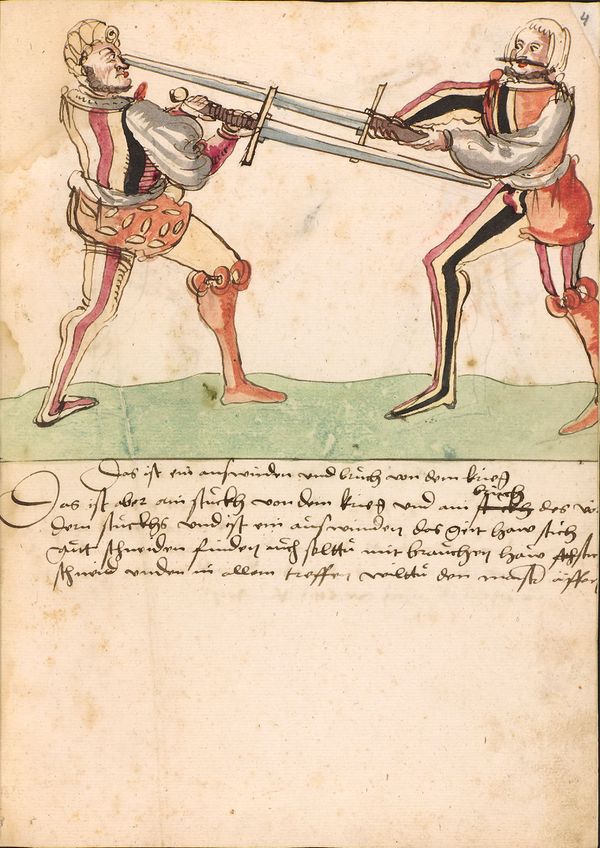 4
Das ist ein auswinden vnd bruch von dem krieg
Das ist aber ain stuckh von dem krieg vnd ain bruch des vo
dern stuckhs vnd ist ein auswinden des haw stich
gut schneiden finden auch solttu mit brauchen haw stich
schneid vnden in allem treffen wilttu den maister äffen